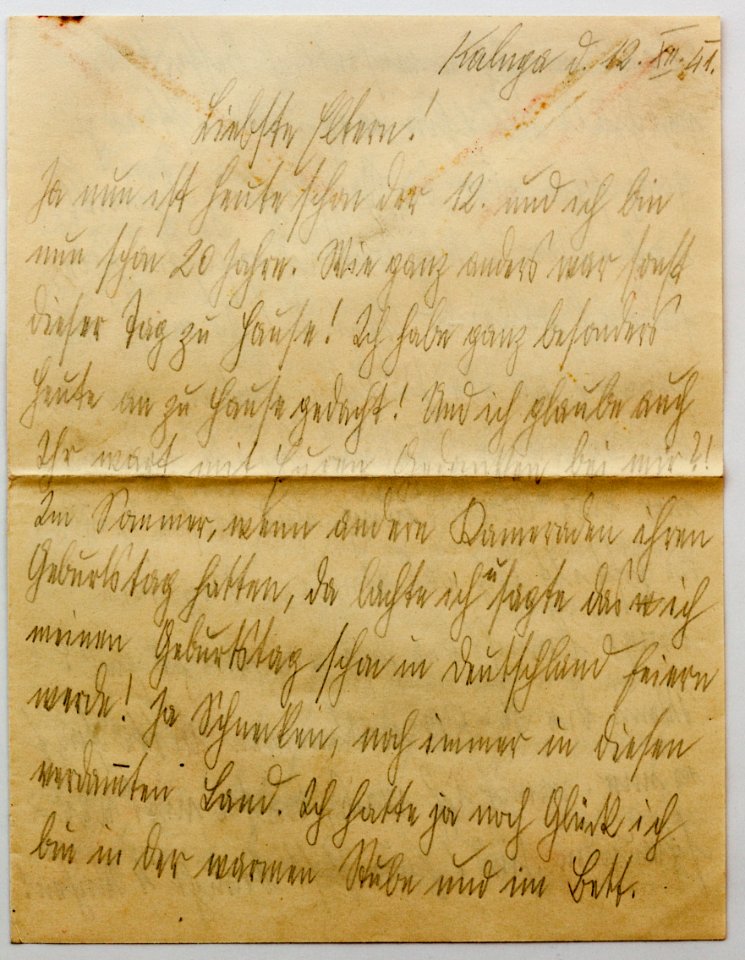 Kaluga d. 12. XII. 41.
Liebste Eltern!
Ja nun ist heute schon der 12. und ich bin
nun schon 20 Jahre. Wie ganz anders war sonst
dieser Tag zu Hause! Ich habe ganz besonders
heute an zu Hause gedacht! Und ich glaube auch
Ihr wart mit Euren Gedanken bei mir?!
Im Sommer, wenn andere Kameraden ihren
Geburtstag hatten, da lachte ich u sagte das ich
meinen Geburtstag schon in Deutschland feiern
werde! Ja Schnecken, noch immer in diesen
verdammten Land. Ich hatte ja noch Glück ich
bin in der warmen Stube und im Bett.